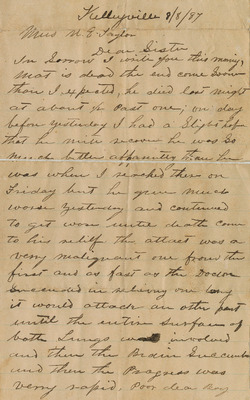 Kelleyville 8/8/97
Miss M. E. Taylor
Dear Sister
In Sorrow I write you this morning,
Mat is dead the end come sooner
than I expected, he died last night
at about ½ Past one, on day
before yesterday I had a Slight hope
that he mite recover he was so
much better apparently than he
was when I reached there on
Friday but he grew much
worse yesterday and continued
to get worse until death came
to his relief the attact was a
very malignant one from the
first and as fast as the Doctor
Succeeded in relieving one lung
it would attack an other part
until the entire Surface of
both Lungs was involved
and then the Brain Succumbed
and then the Progress was
very rapid, Poor dear Boy